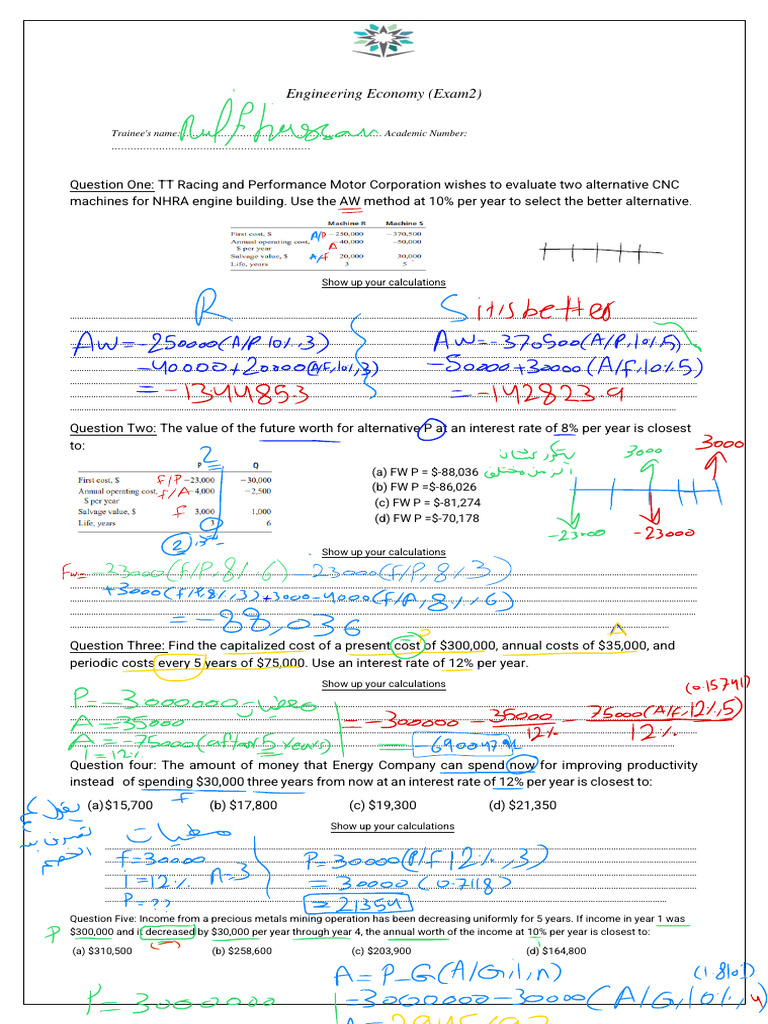 Engineering Economy (Exam2)
Trainee's name: Academic Number:
Question One: TT Racing and Performance Motor Corporation wishes to evaluate two alternative CNC
machines for NHRA engine building. Use the AW method at 10% per year to select the better alternative.
Machine R Machine S
First cost, $ A/P -250,000 -370,500
Annual operating cost, A -40,000 -50,000
$ per year
Salvage value, $ A/F 20,000 30,000
Life, years 3 5
Show up your calculations
R S it is better
AW=-250000(A/P,10%,3) AW=-370500(A/P,10%5)
-40000+20000(A/F,10%,3) -50000+30000(A/F,10%5)
=-134485.3 =-142823.9
Question Two: The value of the future worth for alternative P at an interest rate of 8% per year is closest
to:
2
3000
3000
P Q
First cost, $ F/P -23,000 -30,000
Annual operating cost, F/A -4,000 -2,500
$ per year
Salvage value, $ F 3,000 1,000
Life, years 3 6
2
(a) FW P = $-88,036
(b) FW P =$-86,026
(c) FW P = $-81,274
(d) FW P =$-70,178
-23000 -23000
Show up your calculations
Fw= 23000(F/P,8%6) -23000(F/P,8%3)
+3000(F/P,8%,3)+3000-4000(F/A,8%,6)
=-88,036
Question Three: Find the capitalized cost of a present cost of $300,000, annual costs of $35,000, and
periodic costs every 5 years of $75,000. Use an interest rate of 12% per year.
Show up your calculations
(0.15741)
P=-3000000
A=35000
A=75000(after 5 years)
i=12%
=-300000-35000/12%-75000(A/F,12%,5)/12%
=-690047.92
Question four: The amount of money that Energy Company can spend now for improving productivity
instead of spending $30,000 three years from now at an interest rate of 12% per year is closest to:
F
(a)$15,700 (b) $17,800 (c) $19,300 (d) $21,350
Show up your calculations
معطيات
F=30000
i=12% n=3
P=??
P=30000(P/F12%,3)
=30000(0.7118)
=21354
Question Five: Income from a precious metals mining operation has been decreasing uniformly for 5 years. If income in year 1 was
P $300,000 and it decreased by $30,000 per year through year 4, the annual worth of the income at 10% per year is closest to:
(a) $310,500 (b) $258,600 (c) $203,900 (d) $164,800
A=P-G(A/G,i,n) (1.8101)
P=3000000 =3000000-30000(A/G,10%,4